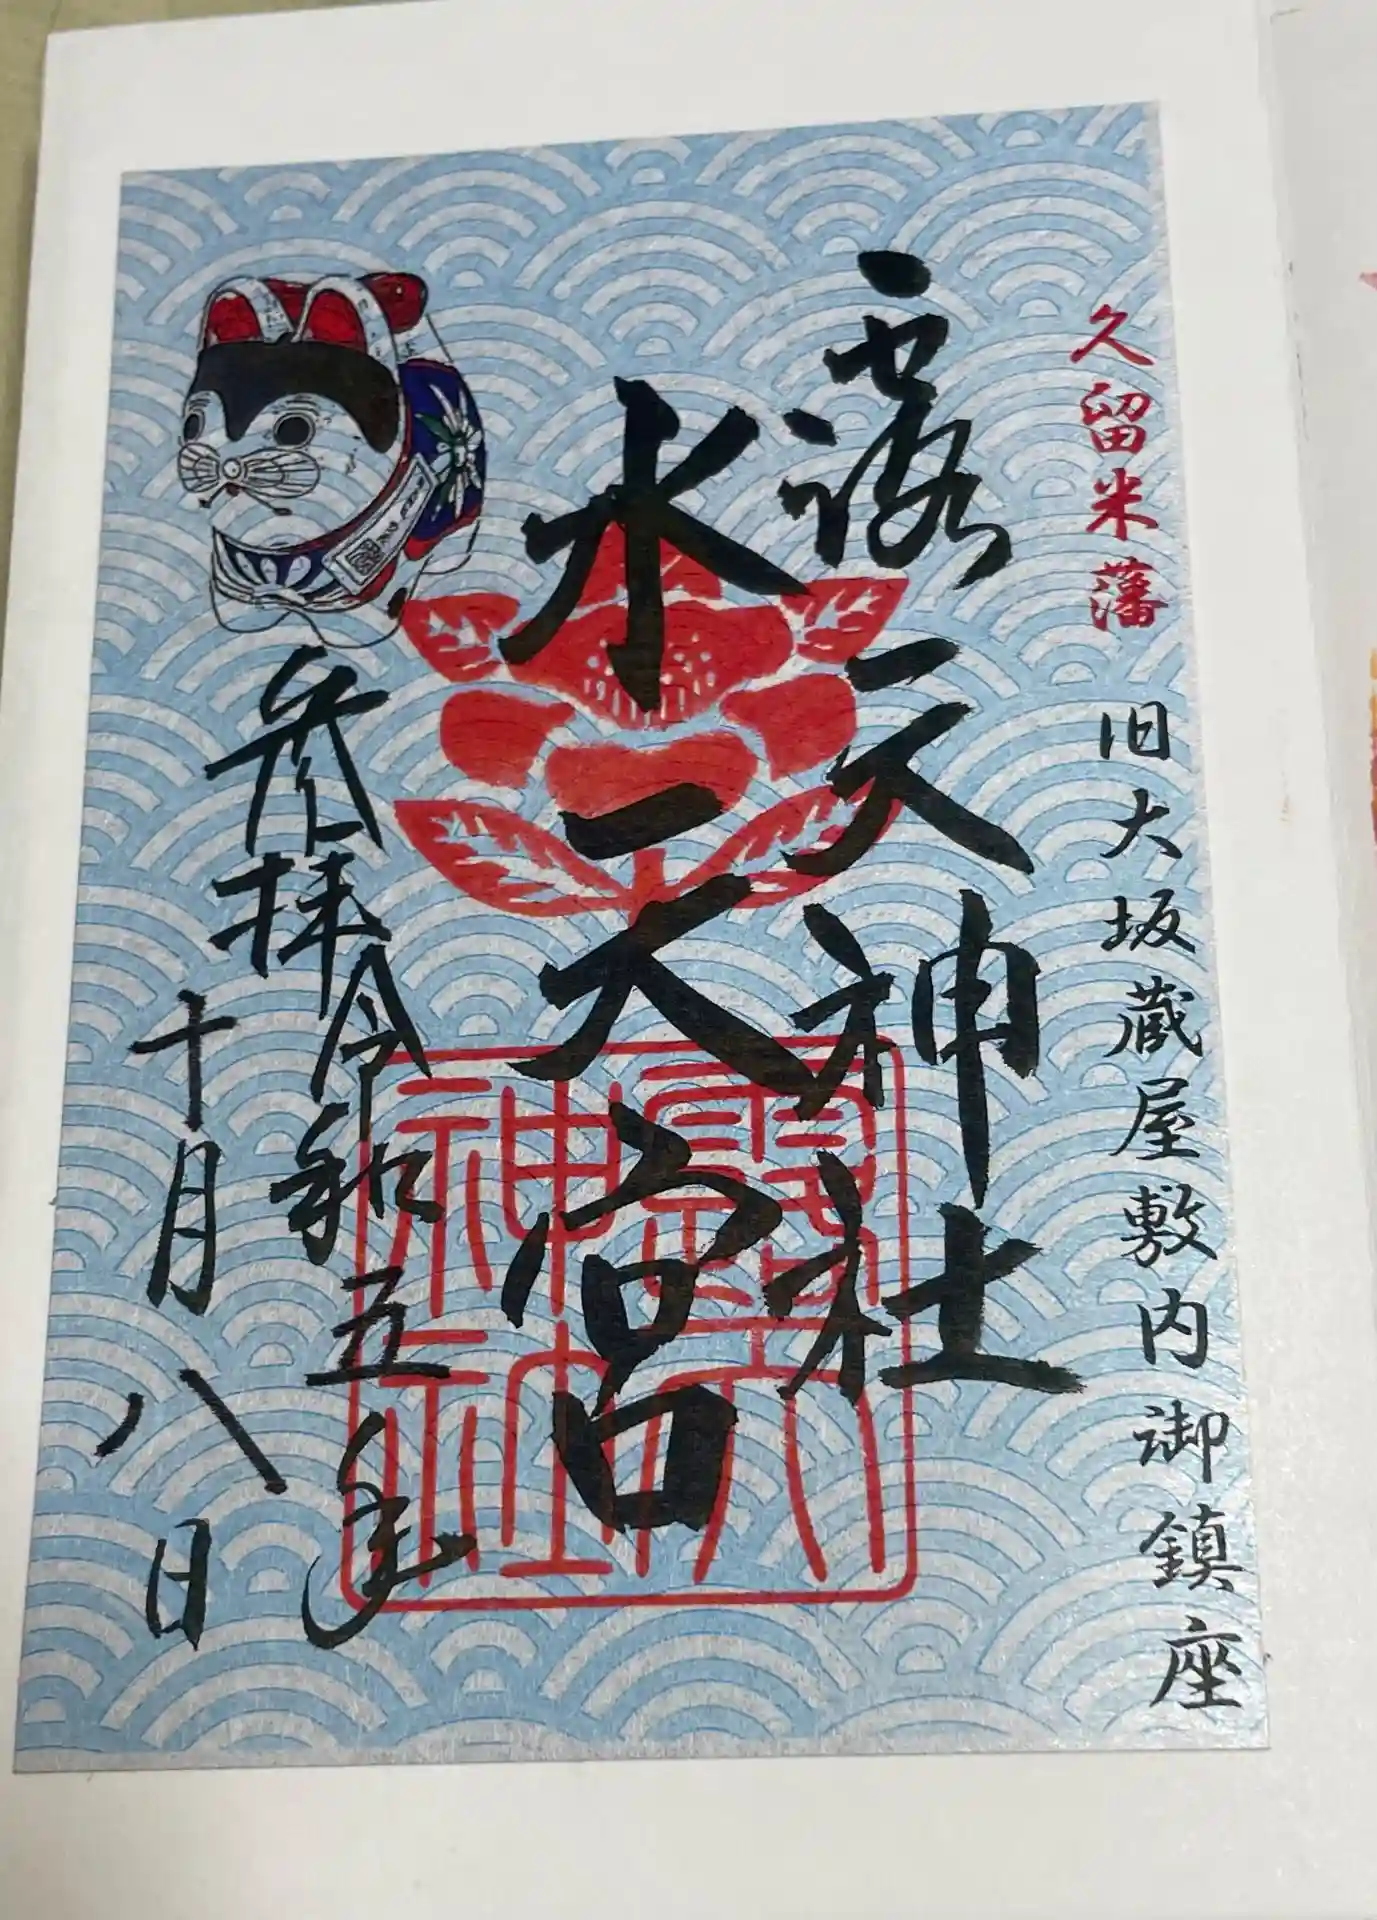 久留米藩 旧大坂蔵屋敷内御鎮座
露天神社
水天宮
参拝 令和五年
十月八日
露天
神社